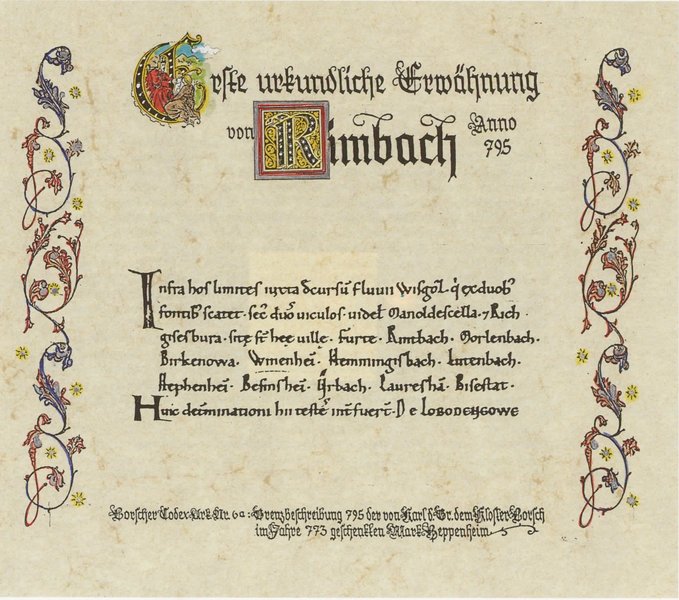 Erste urkundliche Erwähnung
von Rimbach Anno
795
Infra hos limites iuxta decursū fluuii Wisgoz. q̇ ex duob᷒
fontib᷒ scatet. sec̄ duo᷒ uiculos. uidel Manoldescella. ⁊ Rich
gisesbura. sitę st̄ hęę uille. Furte. Rintbach. Morlenbach.
Birkenowa. Winenheī. Hemmingisbach. Lutenbach.
Hephenheī. Besinsheī. Urbach. Lauresha᷒. Bisestat.
Huic det̄minationi hii testes int̄fuer̄. De LOBODENGOWE
Lorscher Codex Urk. Nr. 6a: Grenzbeschreibung 795 der von Karl d. Gr. dem Kloster Lorsch
im Jahre 773 geschenkten Mark Heppenheim